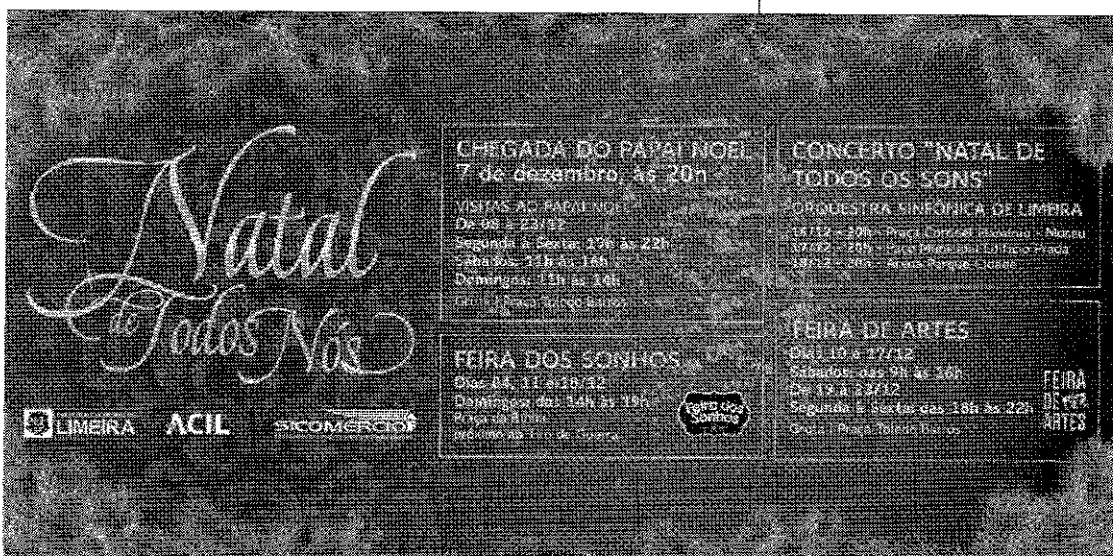 Natal
de Todos Nós
LIMEIRA
ACIL
SICOMERCIO
CHEGADA DO PAPAI NOEL
7 de dezembro, às 20h
VISITAS AO PAPAI NOEL
De 08 a 23/12
Segunda à Sexta: 19h às 22h
Sábados: 11h às 16h
Domingos: 11h às 14h
Gruta - Praça Toledo Barros
FEIRA DOS SONHOS
Dias 04, 11 e 18/12
Domingos: das 14h às 19h
Praça da
próximo ao Tiro de Guerra
Feira dos
Sonhos
CONCERTO "NATAL DE
TODOS OS SONS"
ORQUESTRA SINFÔNICA DE LIMEIRA
16/12 - 20h - Praça Coronel - Museu
17/12 - 20h - Prada
18/12 - 20h - Arena Parque Cidade
FEIRA DE ARTES
Dias 10 e 17/12
Sábados: das 9h às 16h
De 19 a 23/12
Segunda à Sexta: das 18h às 22h
Gruta - Praça Toledo Barros
FEIRA
DE
ARTES